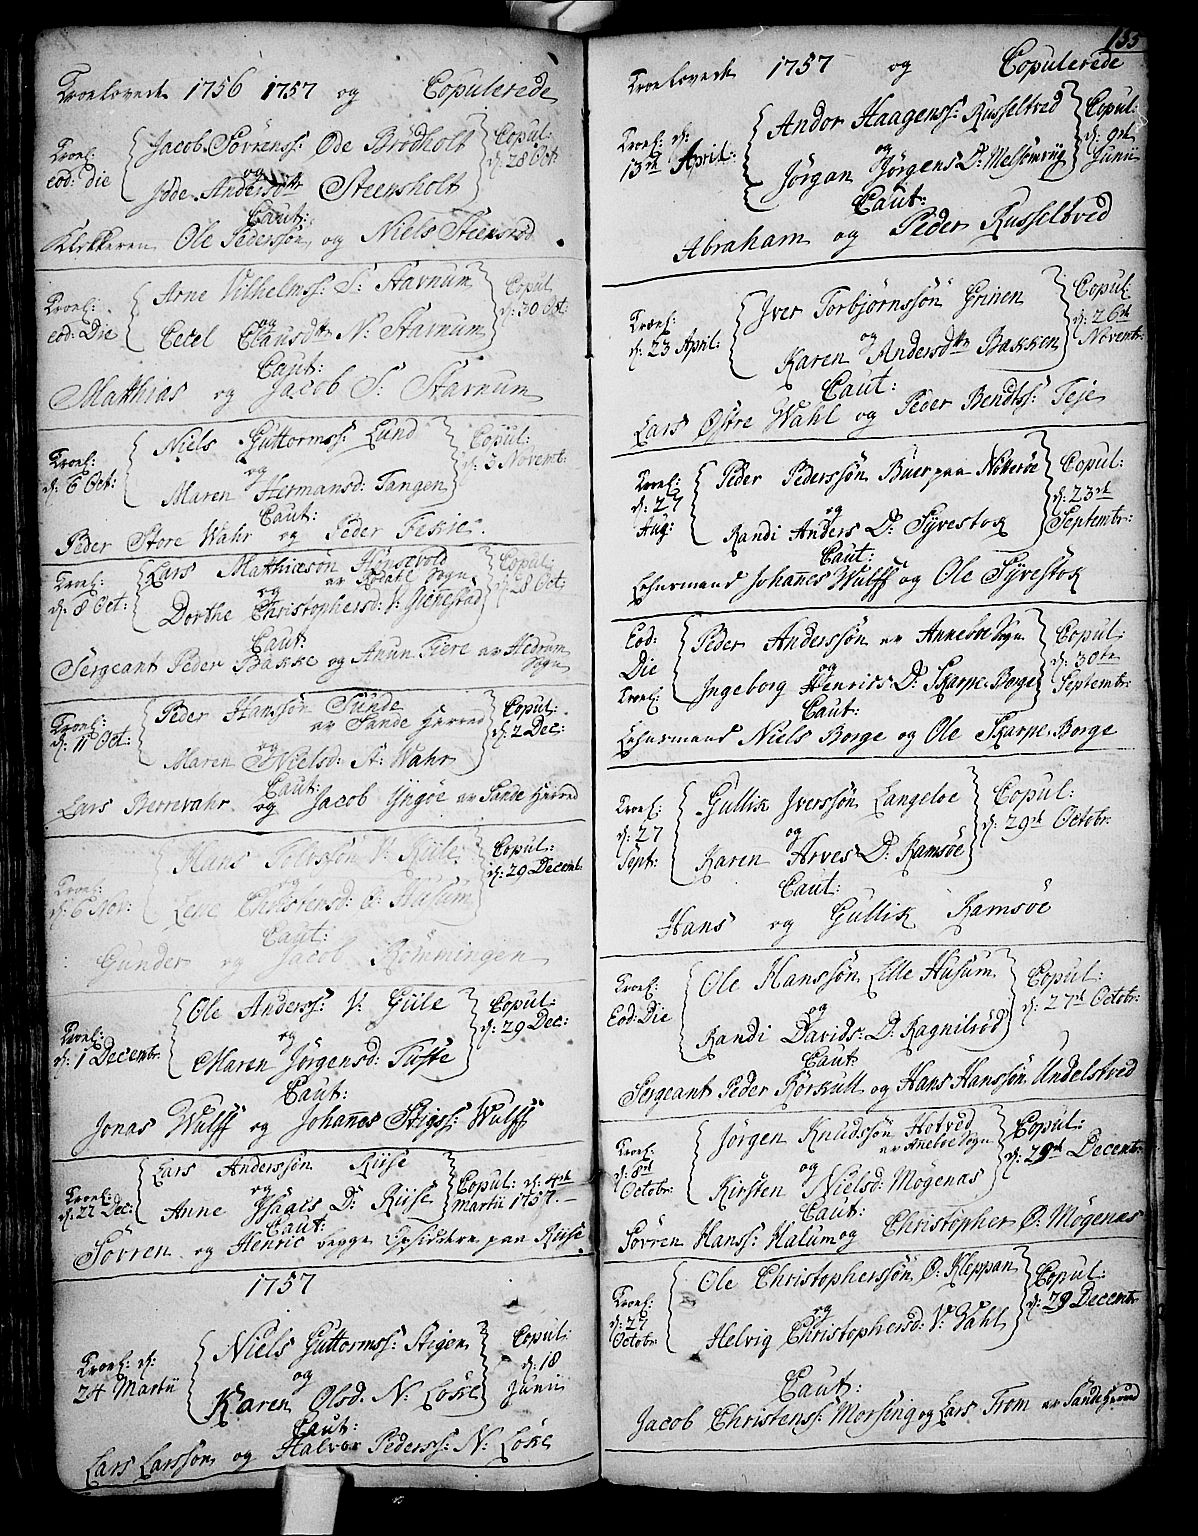 Troelovede 1756 1757 og Copulerede
Troel: eod: die
Jacob Sörrens: Öde Brödholt
og
Jöde Andersdtr Steensholt
Copul: d: 28 Oct:
Caut:
Klokkeren Ole Pederssön og Niels Steensrod
Troel: eod: Die
Arne Vilhelms: S: Stavnum
og
Cetel Clausdtr N: Stavnum
Copul d: 30 Oct:
Caut:
Matthias og Jacob S: Stavnum
Troel: d: 6 Oct:
Niels Guttorms: Lund
og
Maren Hermansd: Tangen
Copul: d: 3 Novemt:
Caut:
Peder Store Wahr og Peder Tekie
Troel: d: 8 Oct:
Lars Matthiesön Hönsevold
av Sogn
og
Dorthe Christophersd: V: Gjennestad
Copul d: 28 Oct:
Caut:
Sergeant Peder Bakke og Anun Fiere av Hedrum
Sogn
Troel: d: 11 Oct:
Peder Hanssön Sunde
av Sande Herred
og
Maren Nielsd: N: Wahr
Copul: d: 2 Dec:
Caut:
Lars Berrevahr og Jacob Yngöe av Sande Herred
Troel: d: 6 Nov:
Hans V: Riile
og
Lene Christensd: Ö: Husum
Copul: d: 29 Decemt:
Caut:
Gunder og Jacob Römmingen
Troel: d: 1 Decembr:
Ole Anderss: V: Giile
og
Maren Jörgensd: Tufte
Copul: d: 29 Dec:
Caut:
Jonas Wulff og Johanes Stigs: Wulff
Troel: d: 22 Dec:
Lars Anderssön Riise
og
Anne Isaacs D: Riise
Copul: d: 4de martii 1757.
Caut:
Sövren og Henric begge Opsiddere paa Riise
1757
Troel: d: 24 Martii
Niels Guttorms: Stigen
og
Karen Olsd. N: Löke
Copul: d: 18 Junii
Caut:
Lars Larssön og Halvor Pederss: N: Löke
155
Troelovede 1757 og Copulerede
Troel: d: 13de April:
Andor Haagens: Russeltved
og
Jörgan Jörgens D: Melsomviig
Copul: d: 9de Junii
Caut:
Abraham og Peder Russeltved
Troel: d: 23 April:
Iver Torbjörnssön Grinen
og
Karen Andersdtr Bakken
Copul: d: 26de Novembr:
Caut:
Lars Östre Wahl og Peder Bendts: Teje
Troel: d: 27 Aug:
Peder Pederssön Buer paa Nötteröe
og
Randi Anders D: Syrestok
Copul: d: 23de Septembr:
Caut:
Lehnsmand Johannes Wulff og Ole Syrestok
Eod: Die Troel:
Peder Anderssön av Anneboe Sogn
og
Ingeborg Henrics: D: Skarpe Borge
Copul: d: 30te Septembr:
Caut:
Lehnsmand Niels Borge og Ole Skarpe Borge
Troel: d: 27 Sept:
Gullik Iverssön Langeloe
og
Karen Arves D: Ramsöe
Copul: d: 29de Octobr:
Caut:
Hans og Gullik Ramsöe
Troel: Eod: Die
Ole Hanssön Lille Husum
og
Randi Davids: D: Ragnilröd
Copul: d: 27de Octobr:
Caut
Sergeant Peder Rörkull og Hans Hanssön Undelstved
Troel: d: 8de Octobr:
Jörgen Knudssön Hotved
av Aneboe Sogn
og
Kirsten Nielsd: Mögenas
Copul: d: 29de Decembr:
Caut:
Sövren Hanss: Halum og Christopher Ö: Mögenas
Troel: d: 27 Octobr:
Ole Christopherssön Ö: Kleppan
og
Helvig Christophersd: V: Vahl
Copul: d: 29 Decembr:
Caut:
Jacob Christenss: Morsing og Lars From av Sandeherred